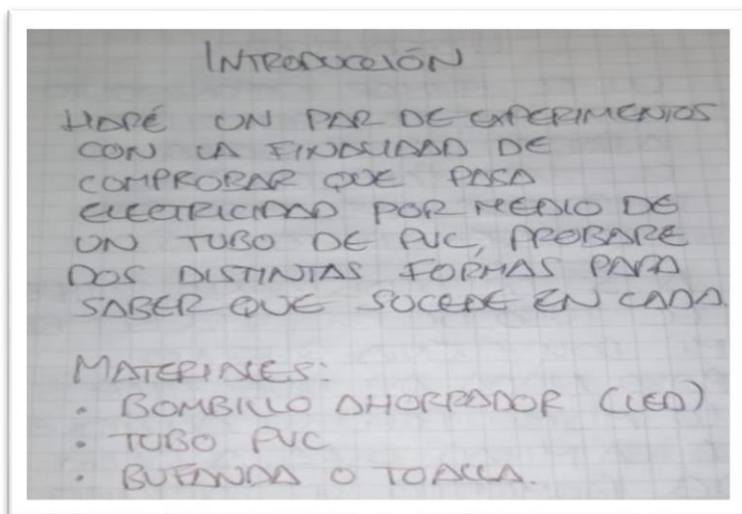 INTRODUCCIÓN
HARÉ UN PAR DE EXPERIMENTOS
CON LA FINALIDAD DE
COMPROBAR QUE PASA
ELECTRICIDAD POR MEDIO DE
UN TUBO DE PVC, PROBARE
DOS DISTINTAS FORMAS PARA
SABER QUE SUCEDE EN CADA
MATERIALES:
• BOMBILLO AHORRADOR (LED)
• TUBO PVC
• BUFANDA O TOALLA.